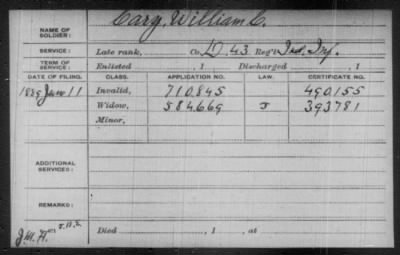 Cary, William C.
NAME OF SOLDIER:
SERVICE: Late rank, Co. D. 43 Reg't Ind. Inf.
TERM OF SERVICE: Enlisted , 1 Discharged , 1
DATE OF FILING. CLASS. APPLICATION NO. LAW. CERTIFICATE NO.
1889 Jan 11 Invalid, 710.845 490.155
Widow, 584.669 J 393781
Minor,
ADDITIONAL SERVICES:
REMARKS:
J.M.H.
Died , 1 , at